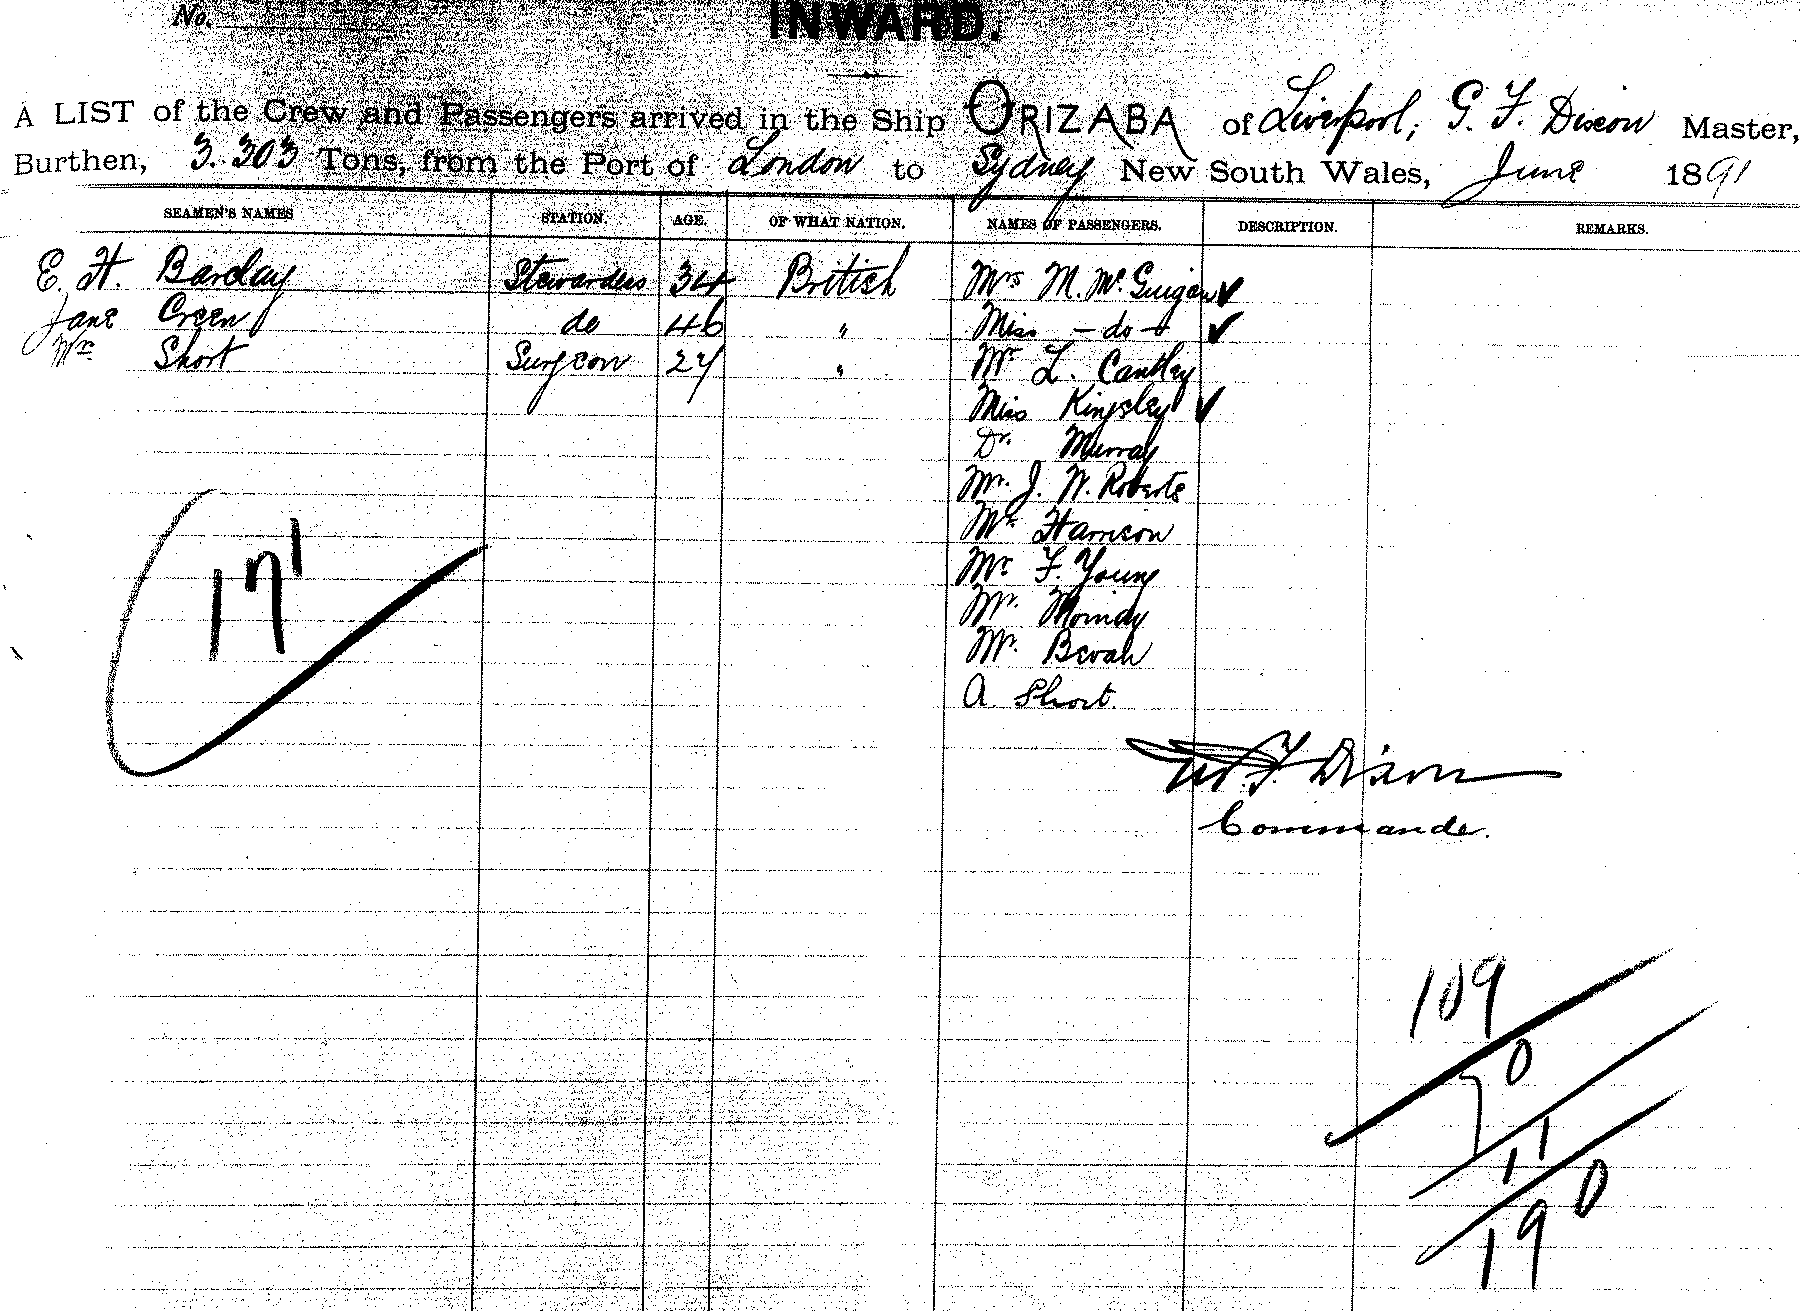 No.
INWARD.
A LIST of the Crew and Passengers arrived in the Ship ORIZABA of Liverpool, G. F. Dixon Master,
Burthen, 3.303 Tons, from the Port of London to Sydney New South Wales, June 1891
SEAMEN'S NAMES STATION. AGE. OF WHAT NATION. NAMES OF PASSENGERS. DESCRIPTION. REMARKS.
E. H. Barclay Stewardess 34 British Mrs M. McGuigan ✓
Jane Green do 46 " Miss - do - ✓
Wm Short Surgeon 27 " Mr L. Cantley
Miss Kingsley ✓
Dr. Murray
Mr. J. W. Roberts
Mr Harrison
Mr F. Young
Mr.
Mr. Bevah
A Short.
171
F. Dixon
Commander.
109
70
11
190